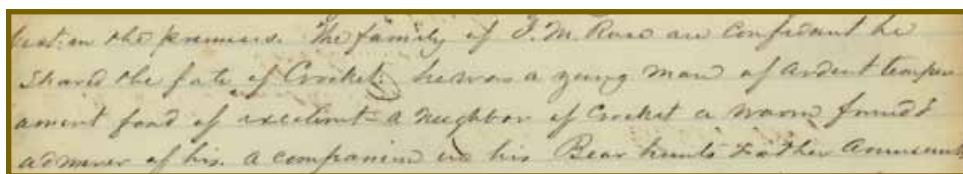 on the premises. The family of J. M. Rose are confident he
Shared the fate of Crocket. he was a young man of Ardent temper
ament fond of a neighbor of Crocket a warm friend &
admirer of his. a companion in his Bear hunts & other Amusements